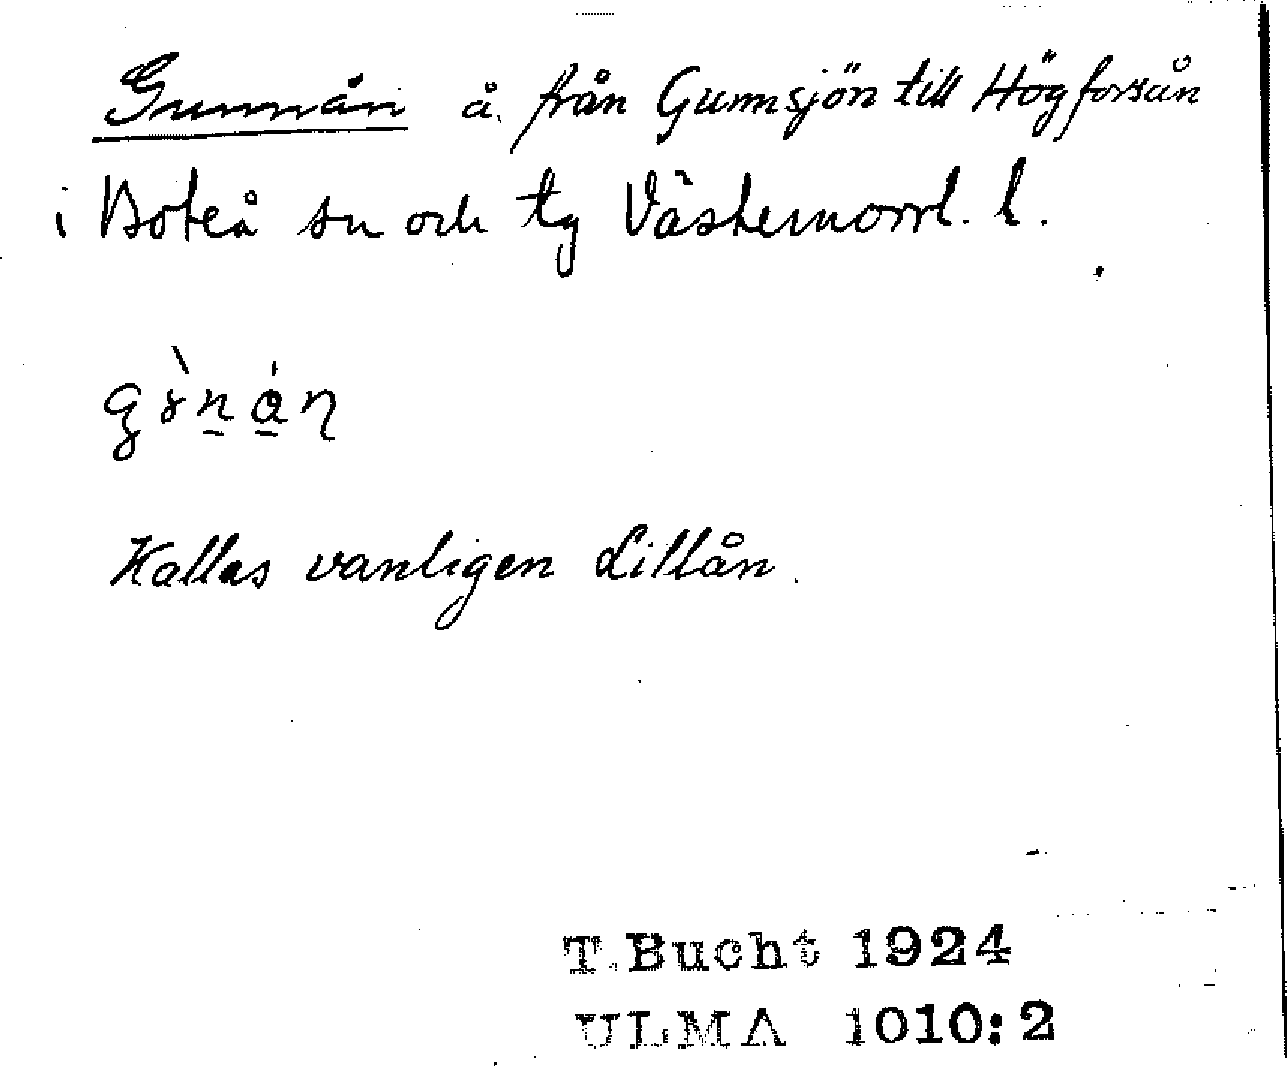 Gunnån å. från Gunnsjön till Högforsån
i Boteå sn och tg Västernorrl. l.
Kallas vanligen Lillån.
T.Bucht 1924
ULMA 1010:2